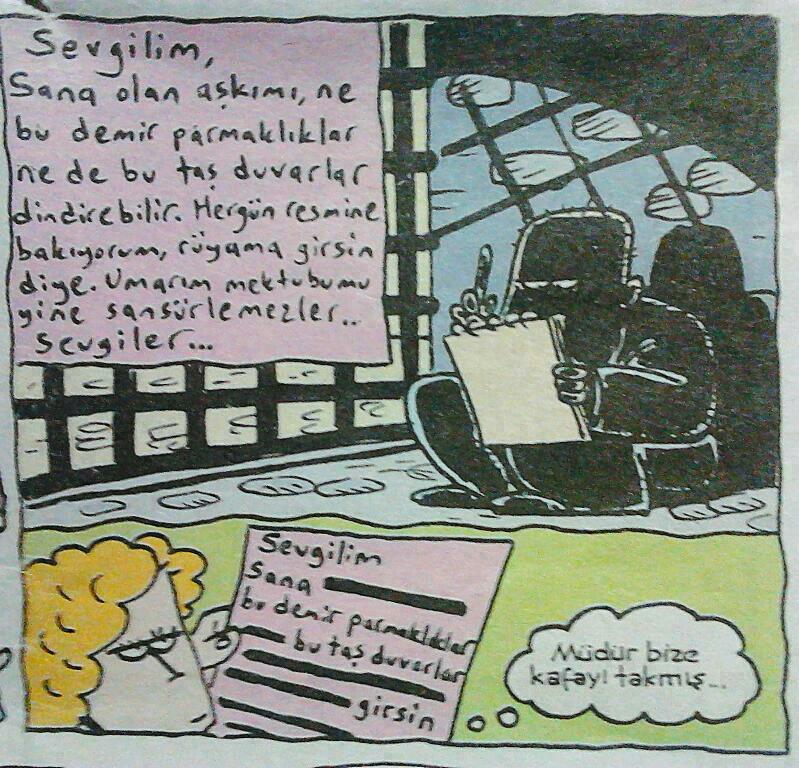 Sevgilim,
Sana olan aşkımı, ne
bu demir parmaklıklar
ne de bu taş duvarlar
dindirebilir. Hergün resmine
bakıyorum, rüyama girsin
diye. Umarım mektubumu
yine sansürlemezler..
Sevgiler...
Sevgilim
Sana
bu demir parmaklıklar
bu taş duvarlar
girsin
Müdür bize
kafayı takmış...